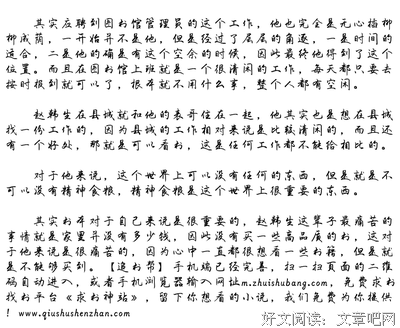 其实应聘到图书馆管理员的这个工作，他也完全是无心插柳
柳成荫，一开始并不是他，但是经过了层层的角逐，一是时间的
适合，二是他的确是有这个空余的时候，因此最终他得到了这个
位置。而且在图书馆上班就是一个很清闲的工作，每天都只要去
按时报到就可以了，根本就不用什么事，整个人都有空闲。
赵韩生在县城就和他的表哥住在一起，他其实也是想在县城
找一份工作的，因为县城的工作相对来说是比较清闲的，而且还
有一个好处，那就是可以看书，这是任何工作都不能给相比的。
对于他来说，这个世界上可以没有任何的东西，但是就是不
可以没有精神食粮，精神食粮是这个世界上很重要的东西。
其实书本对于自己来说是很重要的，赵韩生这辈子最痛苦的
事情就是家里并没有多少钱，因此没有买一些高品质的书，这对
于他来说是很痛苦的，因为心中一直都很想看一些书籍，但是就
是不能够买到。【追书帮】手机端已经完善，扫一扫页面的二维
码自动进入，或者手机浏览器输入网址m.zhuishubang.com，免费求书
找书平台《求书神站》，留下你想看的小说，我们免费为你提供
！www.qiushushenzhan.com
好文阅读：文章吧网